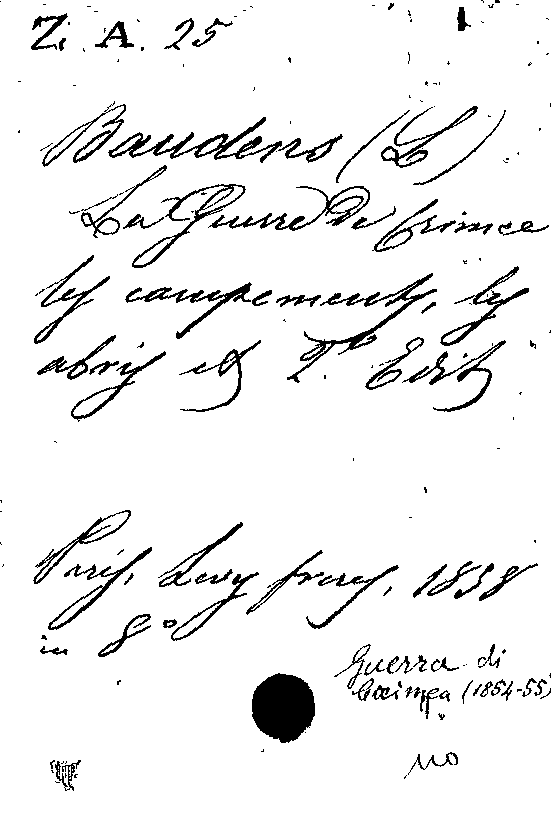 Z. A. 25
Baudens (L)
La Guerre de Crimee
les campements, les
abris etc 2e Edit
Paris, Levy freres, 1858
in 8°
Guerra di
Crimea (1854-55)